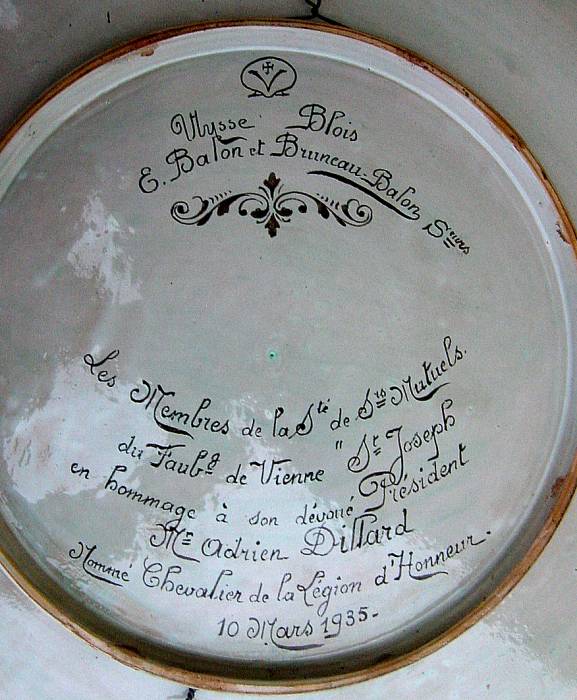 Ulysse Blois
E. Balon et Bruneau-Balon, Sʳˢᵉᵘʳˢ
Les Membres de la Sᵗᵉ de Sʳˢ Mutuels.
du Faubᵍ de Vienne " Sᵗ Joseph
en hommage à son dévoué Président
Mʳ Adrien Dillard
Nommé Chevalier de la Légion d'Honneur.
10 Mars 1935-